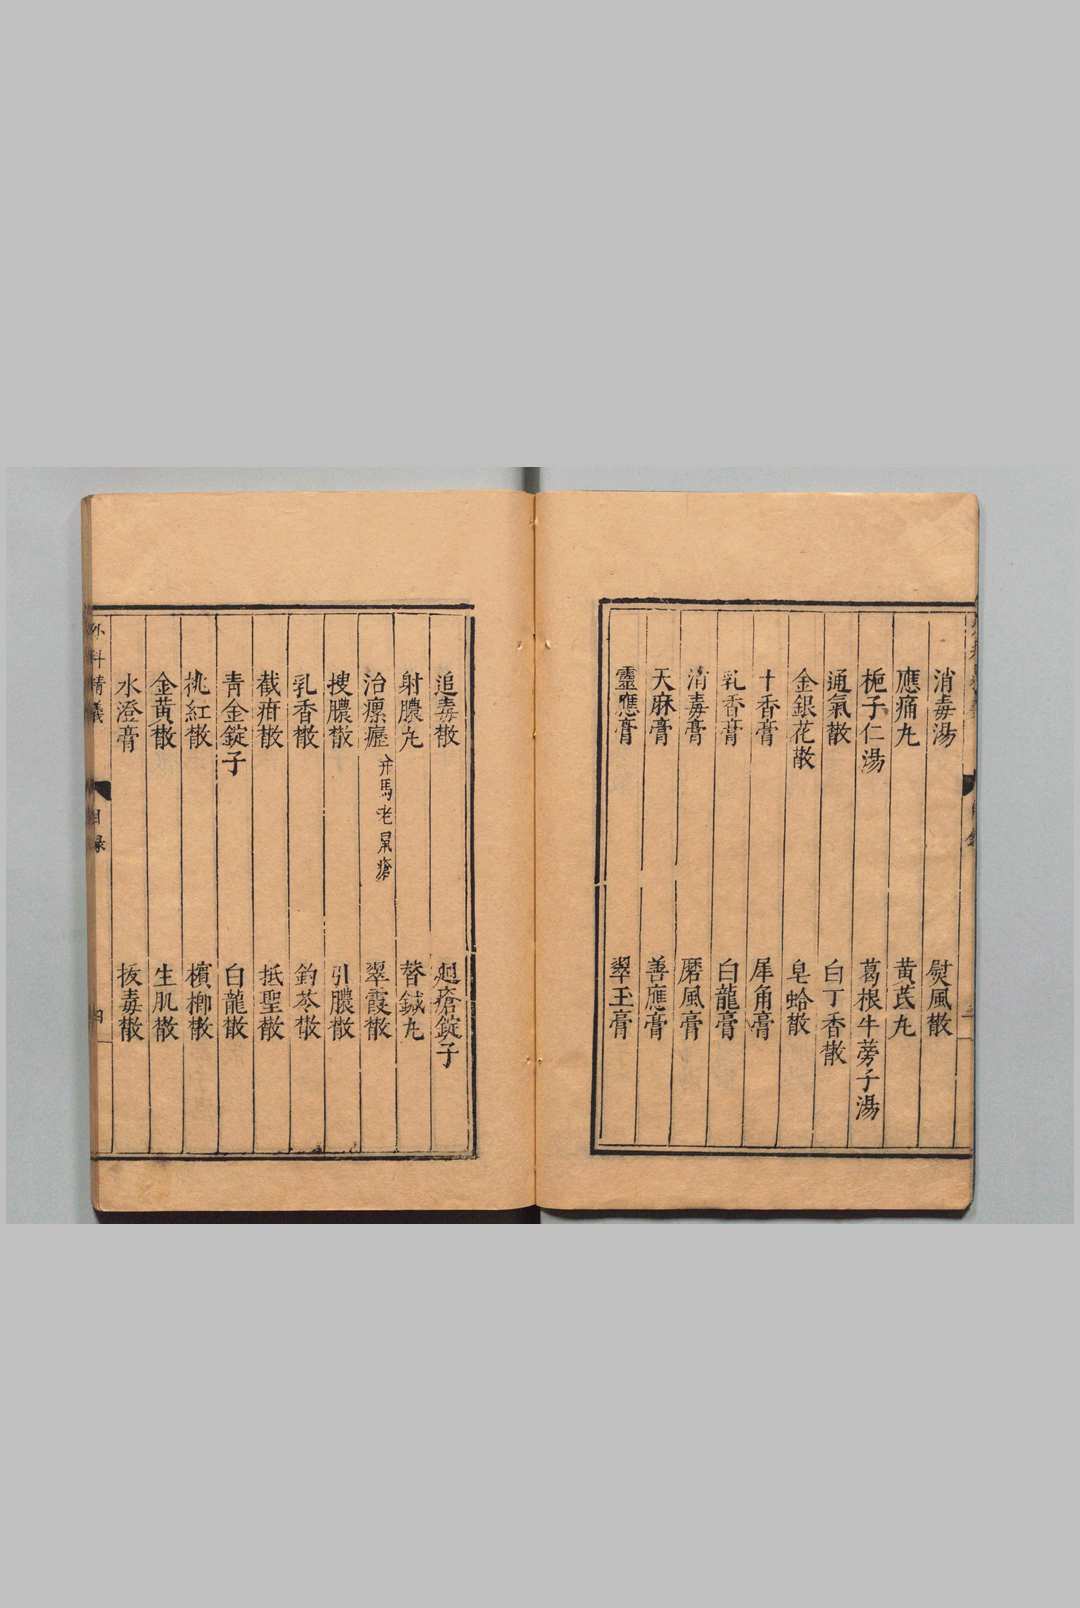 消毒湯 熨風散
應痛丸 黃芪丸
梔子仁湯 葛根牛蒡子湯
通氣散 白丁香散
金銀花散 皂蛤散
十香膏 犀角膏
乳香膏 白龍膏
消毒膏 磨風膏
天麻膏 善應膏
靈應膏 翠玉膏
追毒散 㞫瘡錠子
射膿丸 替鍼丸
治瘰癧并馬老鼠瘡 翠霞散
搜膿散 引膿散
乳香散 鈞苓散
截疳散 抵聖散
青金錠子 白龍散
桃紅散 檳榔散
金黃散 生肌散
水澄膏 拔毒散
外科精義 目録 四